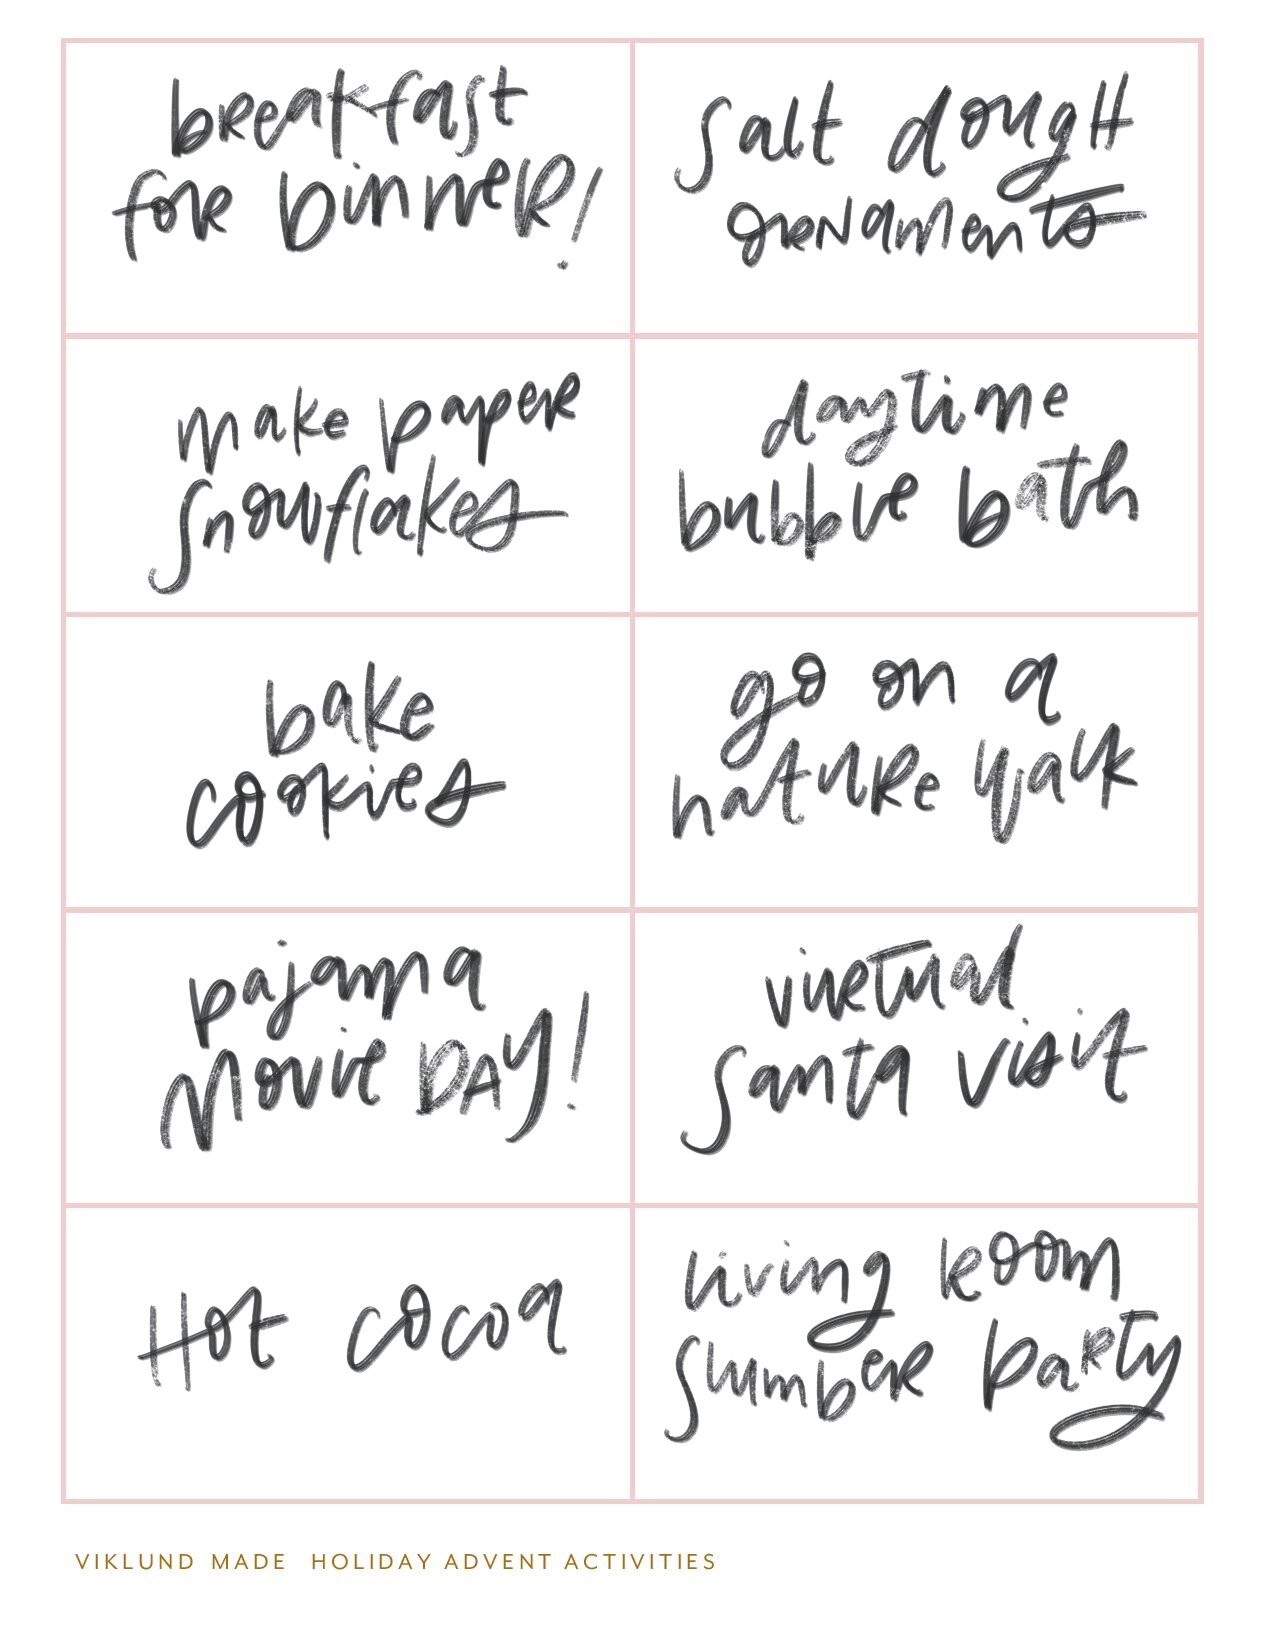 breakfast
for binner!
salt dough
ornaments
make paper
snowflakes
daytime
bubble bath
bake
cookies
go on a
nature walk
pajama
movie DAY!
virtual
santa visit
Hot cocoa
living room
slumber party
VIKLUND MADE HOLIDAY ADVENT ACTIVITIES